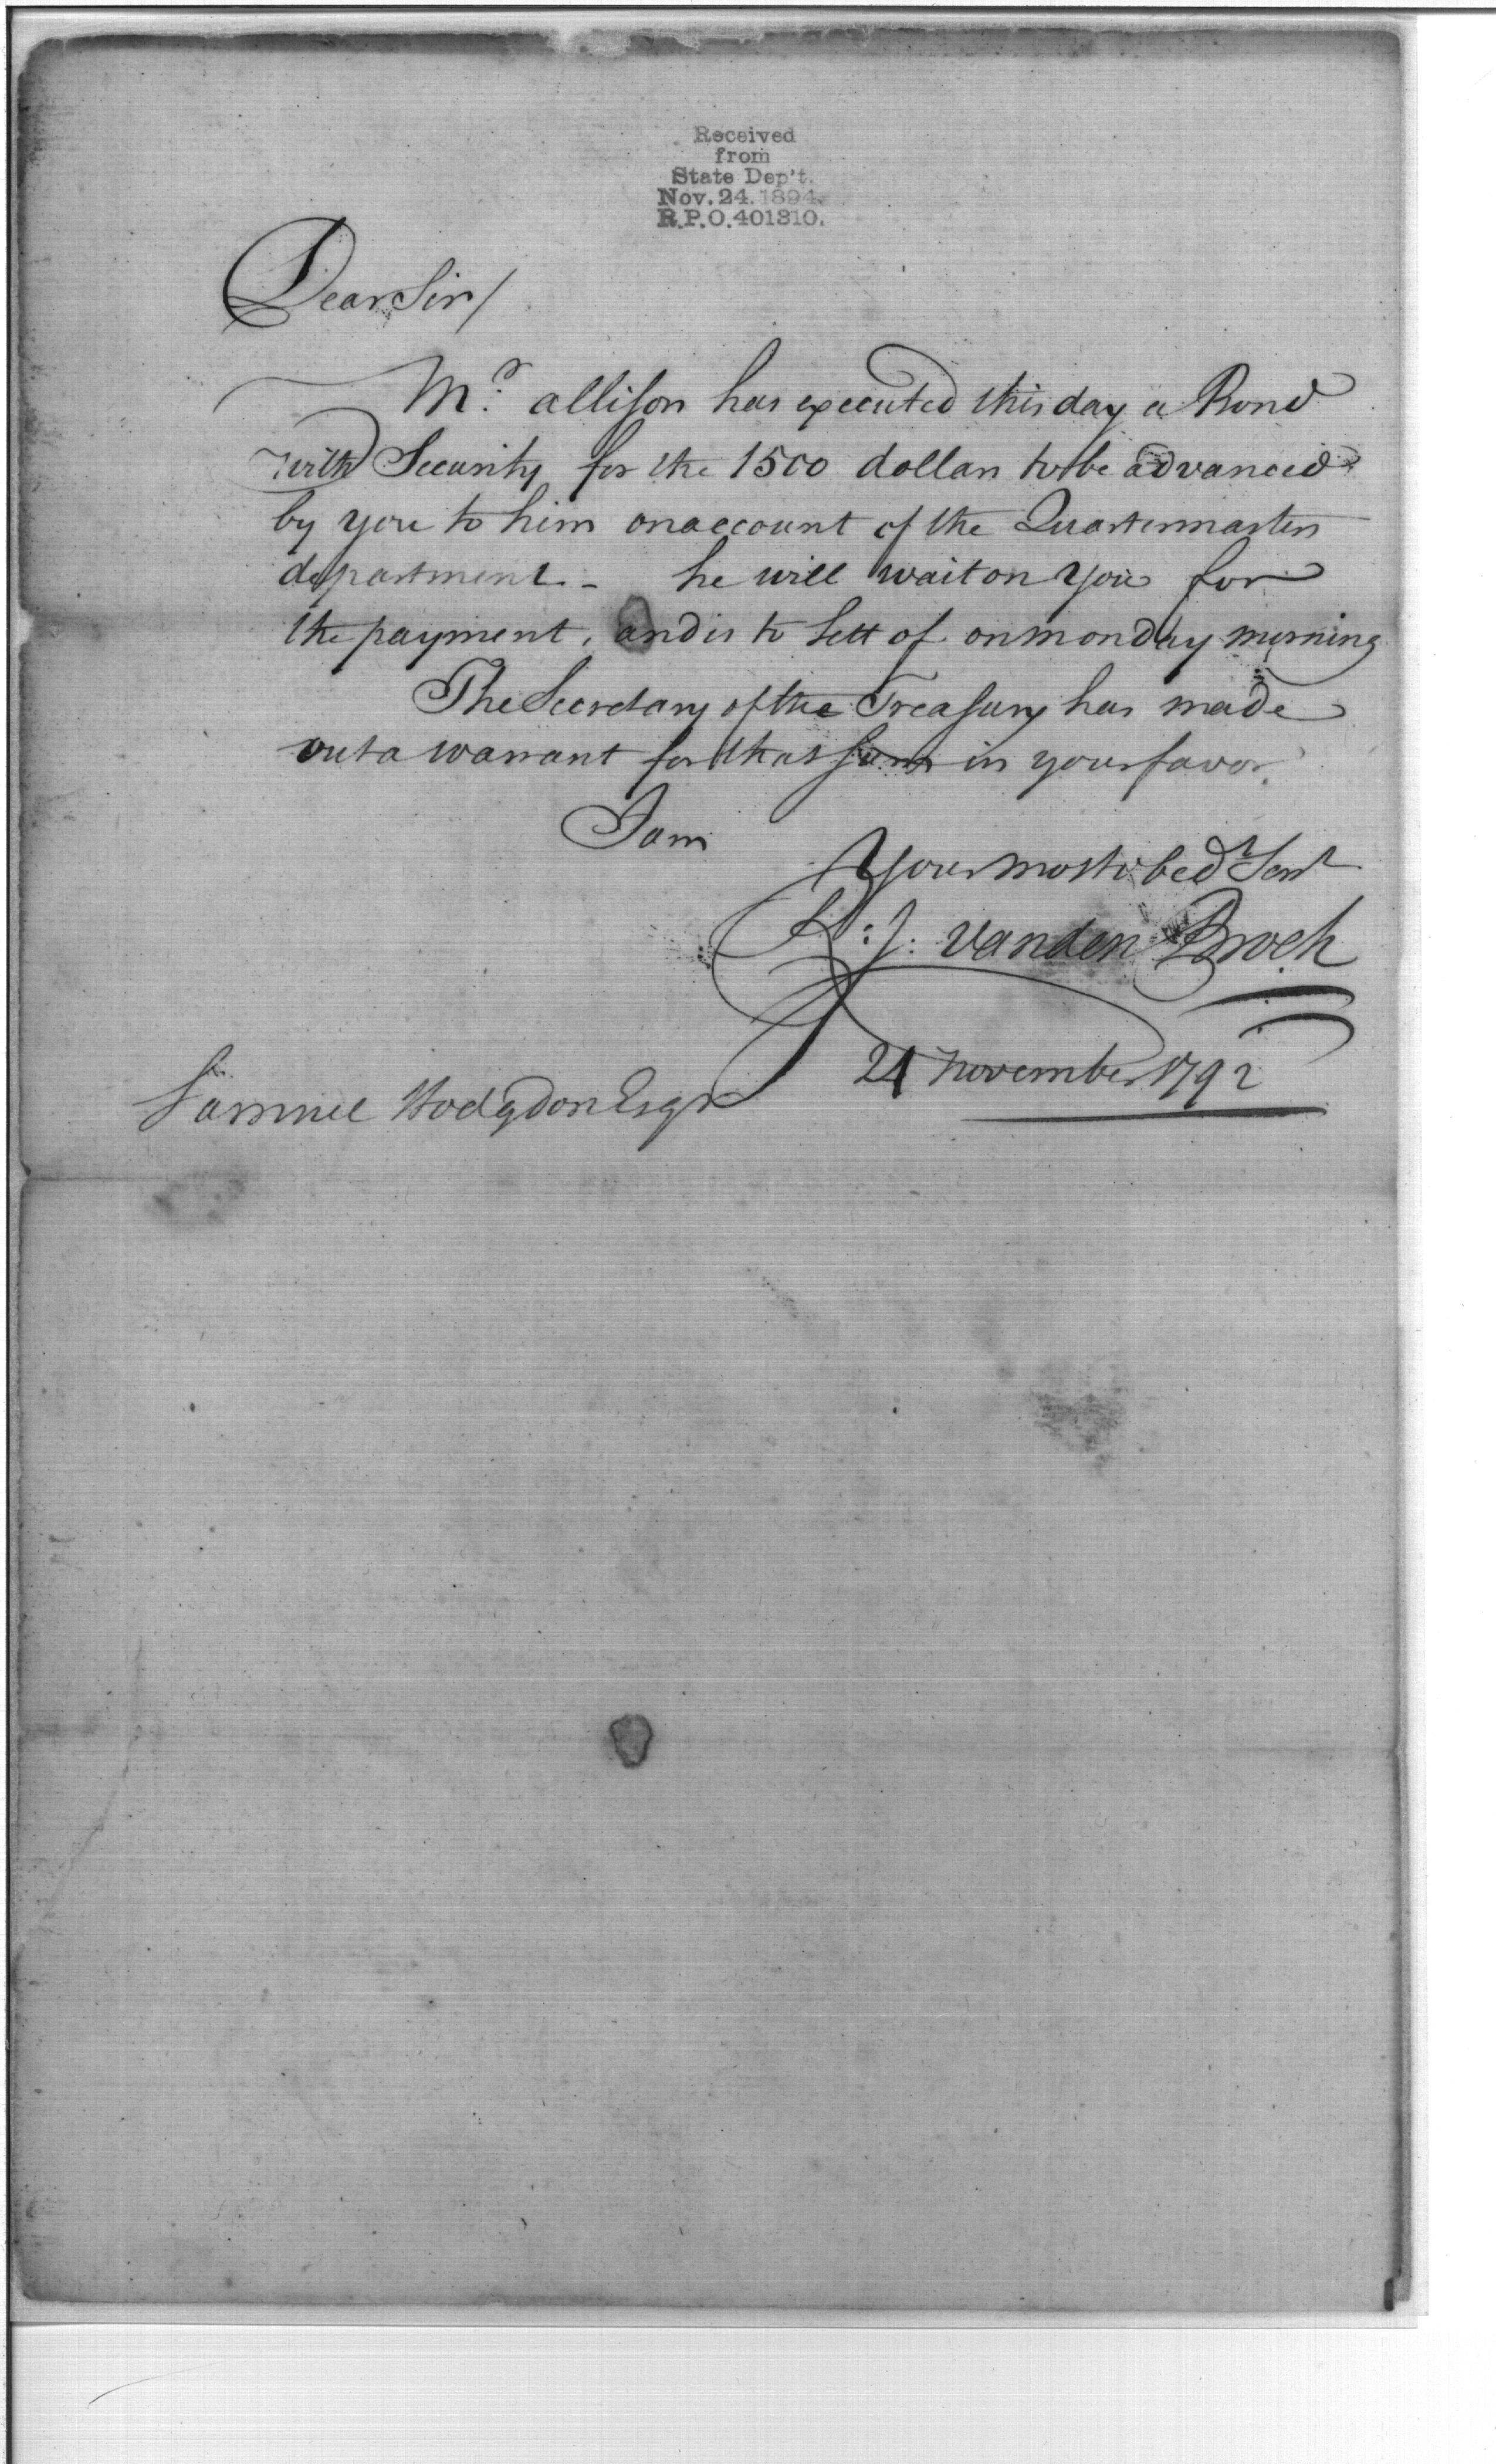 Received
from
State Dep't.
Nov. 24. 1894.
R.P.O. 401310.
Dear Sir /
Mr. allison has executed this day a Bond
with Security for the 1500 dollars to be advanced
by you to him on account of the Quartermasters
department - he will wait on you for
the payment, and is to sett of on monday morning
The Secretary of the Treasury has made
out a warrant for that sum in your favor.
I am
Your most obed.t Servt
R: J. Vanden Broek
24 november 1792
Samuel Hodgdon Esqr